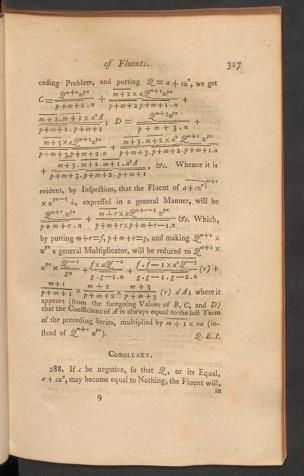 of Fluents. 317
ceding Problem, and putting Q = a + cz^n, we get
C = Q^{m+2} z^{pn} / p+m+2 . n + m+2 × a Q^{m+1} z^{pn} / p+m+2 . p+m+1 . n +
m+2 . m+1 × a² A / p+m+2 . p+m+1 ; D = Q^{m+3} z^{pn} / p+m+3 . n +
m+3 × a Q^{m+2} z^{pn} / p+m+3 . p+m+2 . n + m+3 . m+2 × a² Q^{m+1} z^{pn} / p+m+3 . p+m+2 . p+m+1 . n
+ m+3 . m+2 . m+1 . a³ A / p+m+3 . p+m+2 . p+m+1 , &c. Whence it is
evident, by Inspection, that the Fluent of a+cz^n|^{m+r}
× z^{pn−1} ż, expressed in a general Manner, will be
Q^{m+r} z^{pn} / p+m+r . n + m+r × a Q^{m+r−1} z^{pn} / p+m+r × p+m+r−1 . n &c. Which,
by putting m+r=f, p+m+r=g, and making Q^{m+1} ×
z^{pn} a general Multiplicator, will be reduced to Q^{m+1} ×
z^{pn} × Q^{r−1} / gn + f × a Q^{r−2} / g . g−1 . n + f . f−1 × a² Q^{r−3} / g . g−1 . g−2 . n (r) +
m+1 / p+m+1 × m+2 / p+m+2 × m+3 / p+m+3 (r) a^r A; where it
appears (from the foregoing Values of B, C, and D)
that the Coefficient of A is always equal to the last Term
of the preceding Series, multiplied by m + 1 × na (in-
stead of Q^{m+1} z^{pn}). Q. E. I.
COROLLARY.
288. If c be negative, so that Q, or its Equal,
a + cz^n, may become equal to Nothing, the Fluent will,
in
9